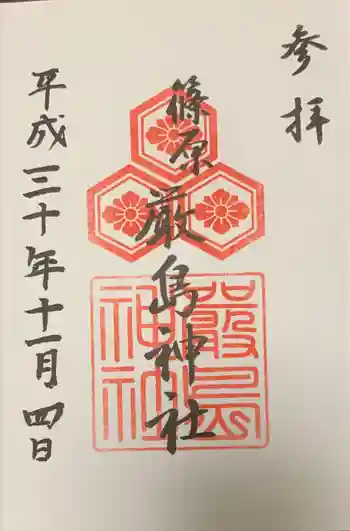 参拝
篠原
厳島神社
嚴島神社
平成三十年十一月四日